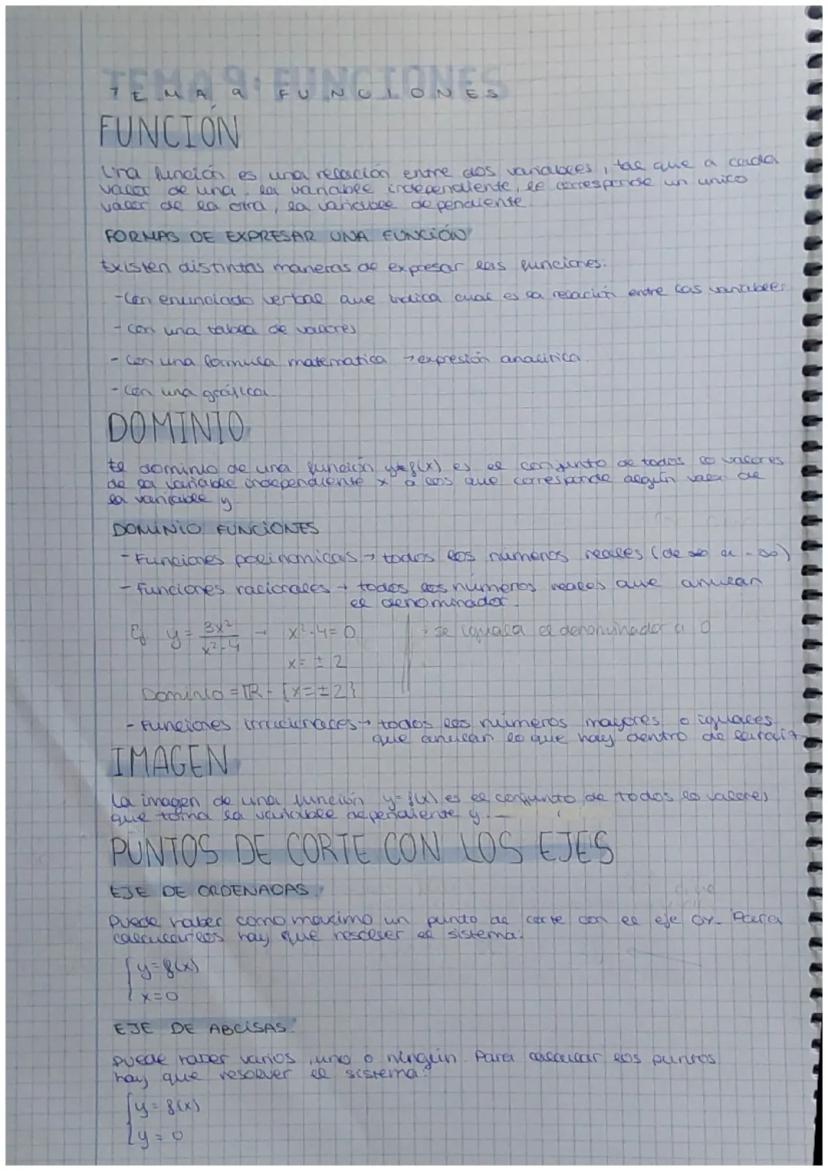 TEMA 9: FUNCIONES
FUNCIÓN
Una función es una relación entre dos variables, tal que a cada
valor de una, la variable independiente, le corresponde un unico
valor de la otra, la variable dependiente
FORMAS DE EXPRESAR UNA FUNCIÓN
Existen distintas maneras de expresar las funciones:
-Con enunciado verbal que indica cual es la relación entre las variables
- Con una tabla de valores
- Con una formula matematica → expresión analitica.
- Con una gráfica
DOMINIO
El dominio de una función y=f(x) es el conjunto de todos lo valores
de la variable independiente x a los que corresponde algún valor de
la variable y
DOMINIO FUNCIONES
- Funciones polinomicas → todos los numeros reales (de ∞ a -∞)
- Funciones racionales → todos los números reales que anulan
el denominador.
Ej y = 3x²/x²-4 → x²-4=0 → se iguala el denominador a 0
x = ± 2
Dominio = ℝ - {x=±2}
- Funciones irracionales → todos los números mayores o iguales
que anulan lo que hay dentro de la raiz
IMAGEN
La imagen de una función y=f(x) es el conjunto de todos lo valores
que toma la variable dependiente y.
PUNTOS DE CORTE CON LOS EJES
EJE DE ORDENADAS
Puede haber como maximo un punto de corte con el eje OY. Para
calcularlos hay que resolver el sistema:
{y=f(x)
x=0
EJE DE ABCISAS:
Puede haber varios, uno o ningún. Para calcular los puntos
hay que resolver el sistema:
{y=f(x)
y=0